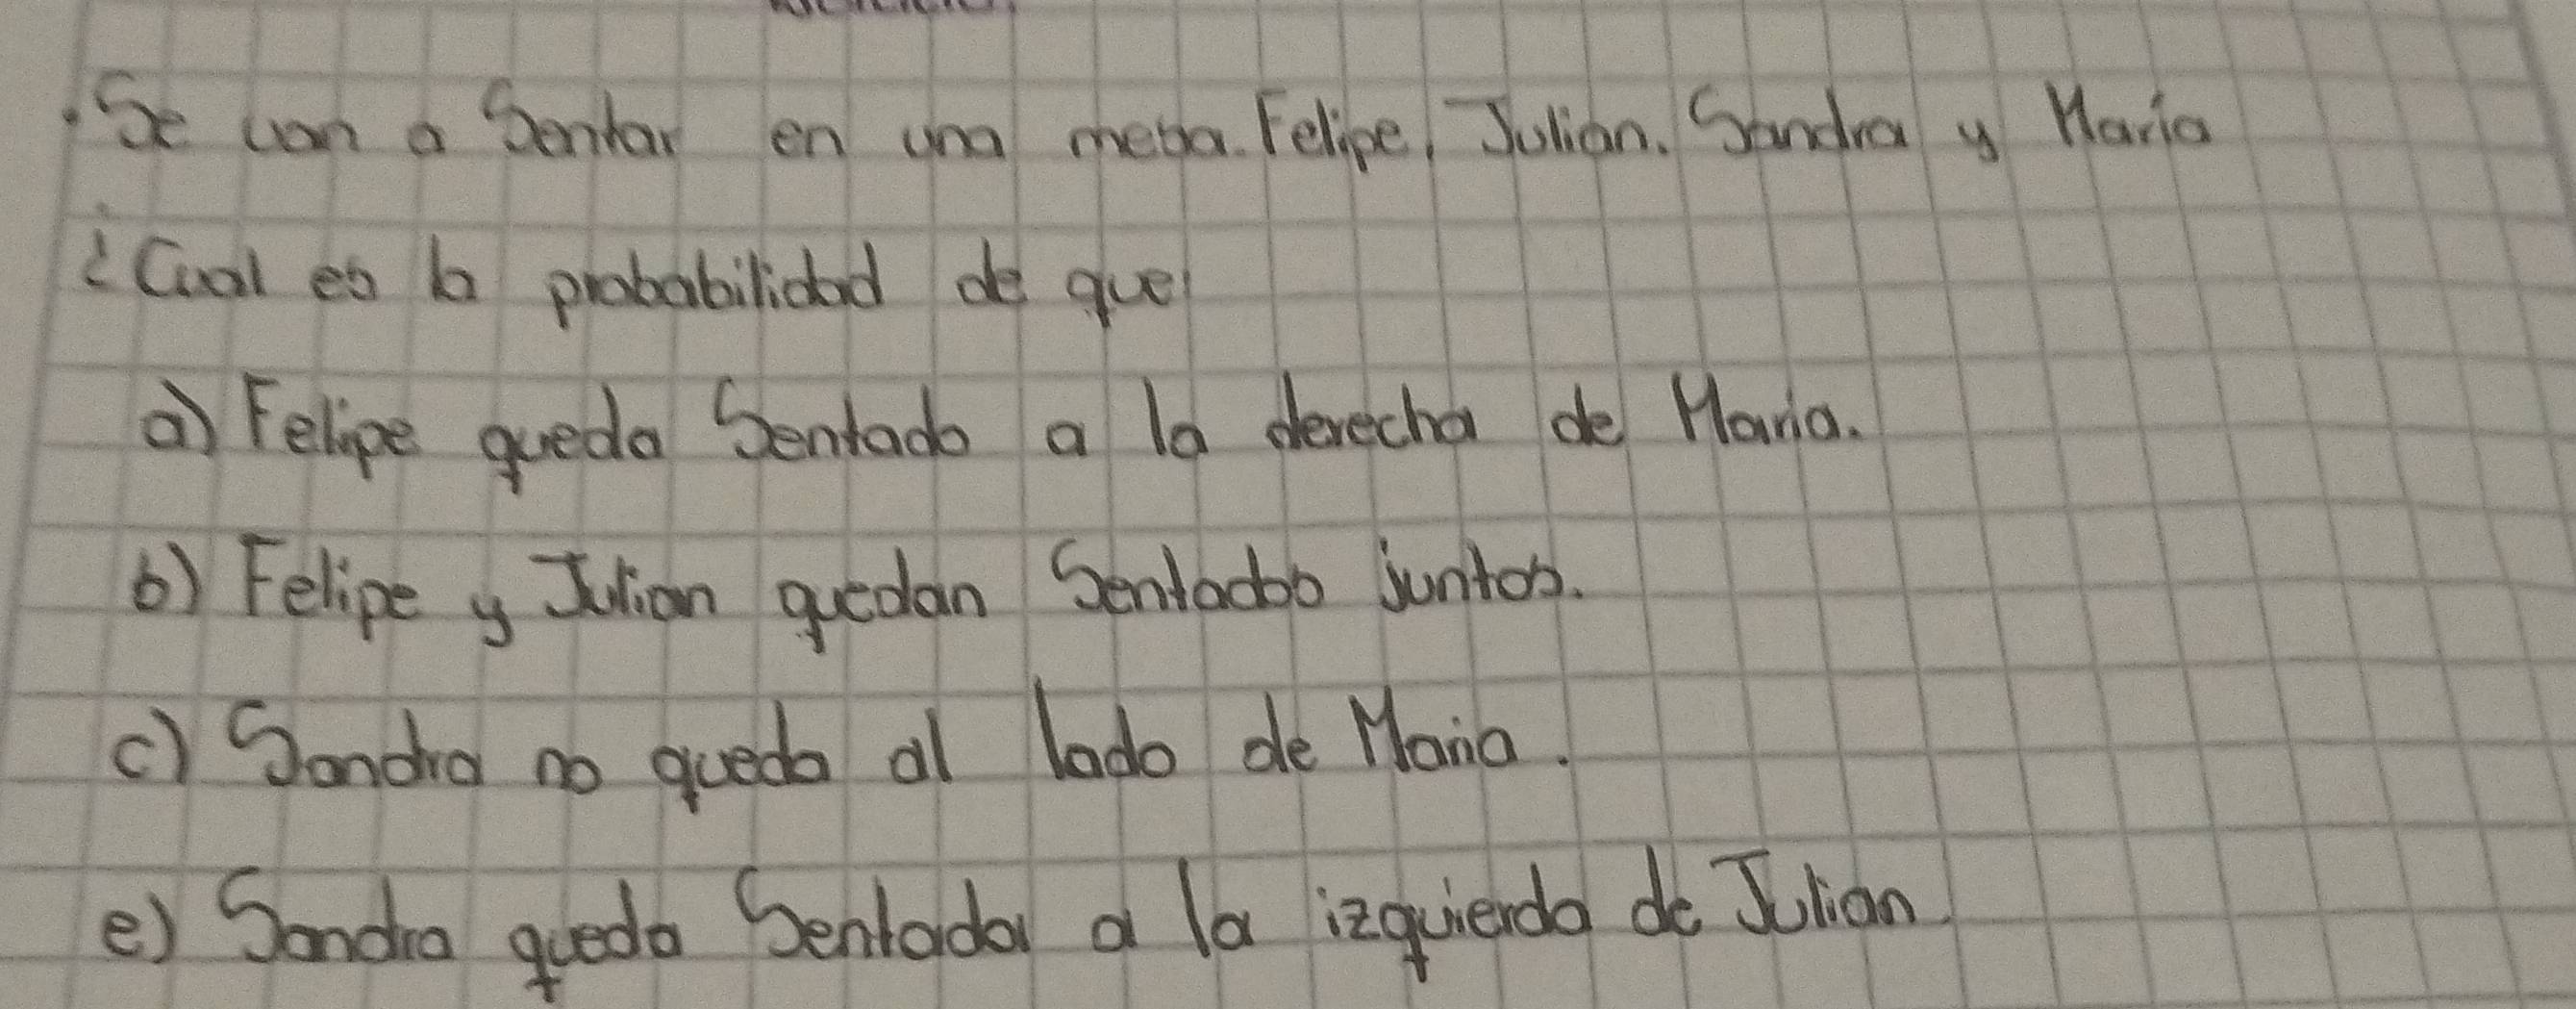 . Se van a Sentar en una mesa. Felipe, Julian. Sandra y Maria
¿Cual es la probabilidad de que:
a) Felipe queda Sentado a la derecha de Maria.
b) Felipe y Julian quedan Sentados juntos.
c) Sandra no queda al lado de Maria.
e) Sandra queda Sentada a la izquierda de Julian